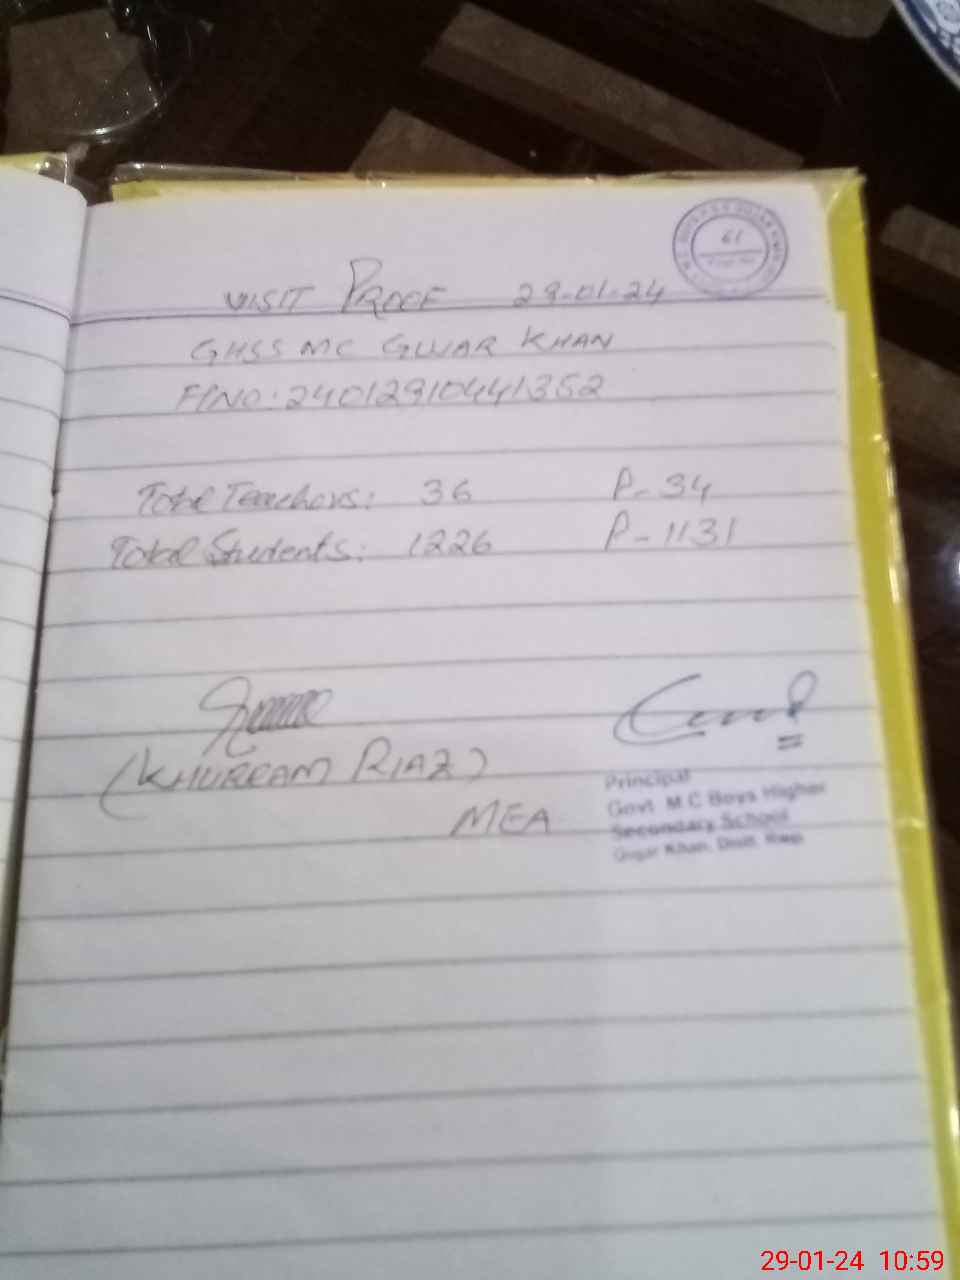 61
VISIT PROOF 29-01-24
GHSS MC GUJAR KHAN
F/NO: 24012910441352
Total Teachers: 36 P- 34
Total Students: 1226 P- 1131
(KHURRAM RIAZ)
MEA
Principal
Govt M.C Boys Higher
Secondary School
Gujar Khan, Distt. Rwp
29-01-24 10:59